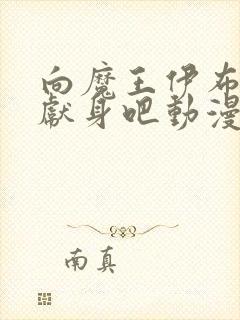 向魔王伊布
獻身吧動漫
南真